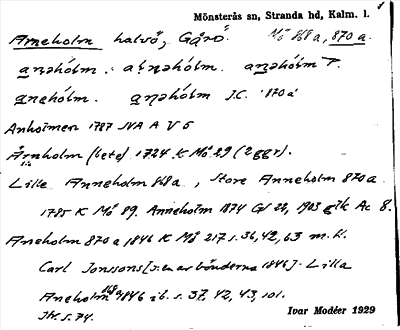 Mönsterås sn, Stranda hd, Kalm. l.
Arneholm halvö, Gårö. Mö 868a, 870a.
anəhólm. aṇəhólm. anəhólm P.
anehólm. anəhólm J.C. 870a
Anholmen 1787 JVA A V 5
Årnholm (bete) 1724 K Mö 29 (2 ggr).
Lilla Anneholm 868a, Store Anneholm 870a
1785 K Mö 89. Anneholm 1874 Gs 28, 1903 glk Ac 8.
Aneholm 870a, 1846 K Mö 217 s. 36, 42, 63 m.fl.
Carl Jonssons [: en av bönderna 1846]. Lilla
Aneholm 868a 1846 ib. s. 37, 42, 43, 101.
s. 74.
Ivar Modéer 1929